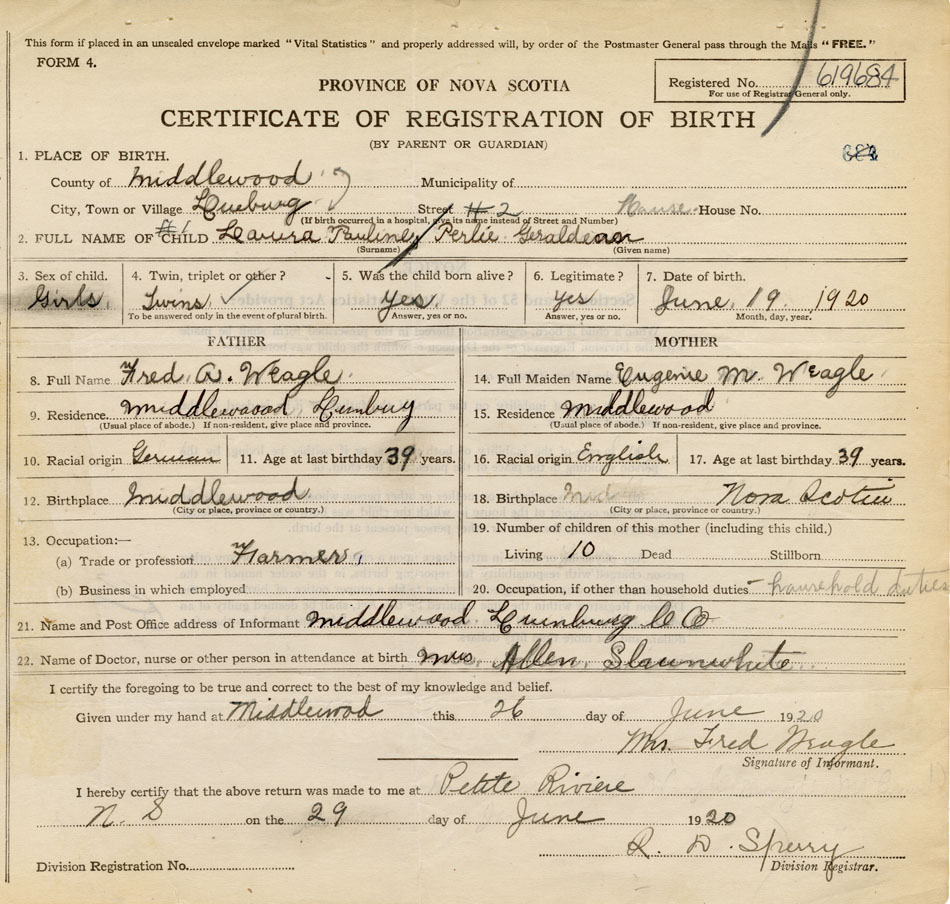 This form if placed in an unsealed envelope marked "Vital Statistics" and properly addressed will, by order of the Postmaster General pass through the Mails "FREE."
FORM 4.
Registered No. 619684
For use of Registrar General only.
PROVINCE OF NOVA SCOTIA
CERTIFICATE OF REGISTRATION OF BIRTH
(BY PARENT OR GUARDIAN)
1. PLACE OF BIRTH.
County of Middlewood Municipality of
City, Town or Village Street #2 House House No.
(If birth occurred in a hospital, give its name instead of Street and Number)
#1
2. FULL NAME OF CHILD Laura Pauline / Perlie Geraldean
(Surname) (Given name)
3. Sex of child. 4. Twin, triplet or other? 5. Was the child born alive? 6. Legitimate? 7. Date of birth.
Girls. Twins Yes. Yes June 19 1920
To be answered only in the event of plural birth. Answer, yes or no. Answer, yes or no. Month, day, year.
FATHER MOTHER
8. Full Name Fred. A. Weagle. 14. Full Maiden Name Eugenie M. Weagle
9. Residence Middlewood 15. Residence Middlewood
(Usual place of abode.) If non-resident, give place and province. (Usual place of abode.) If non-resident, give place and province.
10. Racial origin German 11. Age at last birthday 39 years. 16. Racial origin English 17. Age at last birthday 39 years.
12. Birthplace Middlewood 18. Birthplace Mid Nova Scotia
(City or place, province or country.) (City or place, province or country.)
19. Number of children of this mother (including this child.)
13. Occupation:—
(a) Trade or profession Farmer Living 10 Dead Stillborn
(b) Business in which employed 20. Occupation, if other than household duties household duties
21. Name and Post Office address of Informant Middlewood Lunburg C O
22. Name of Doctor, nurse or other person in attendance at birth Mrs. Allen Slawnwhite
I certify the foregoing to be true and correct to the best of my knowledge and belief.
Given under my hand at Middlewod this 26 day of June 1920
Mrs. Fred Weagle
Signature of Informant.
I hereby certify that the above return was made to me at Petite Riviere
N. S on the 29 day of June 1920
R. D. Sperry
Division Registration No. Division Registrar.